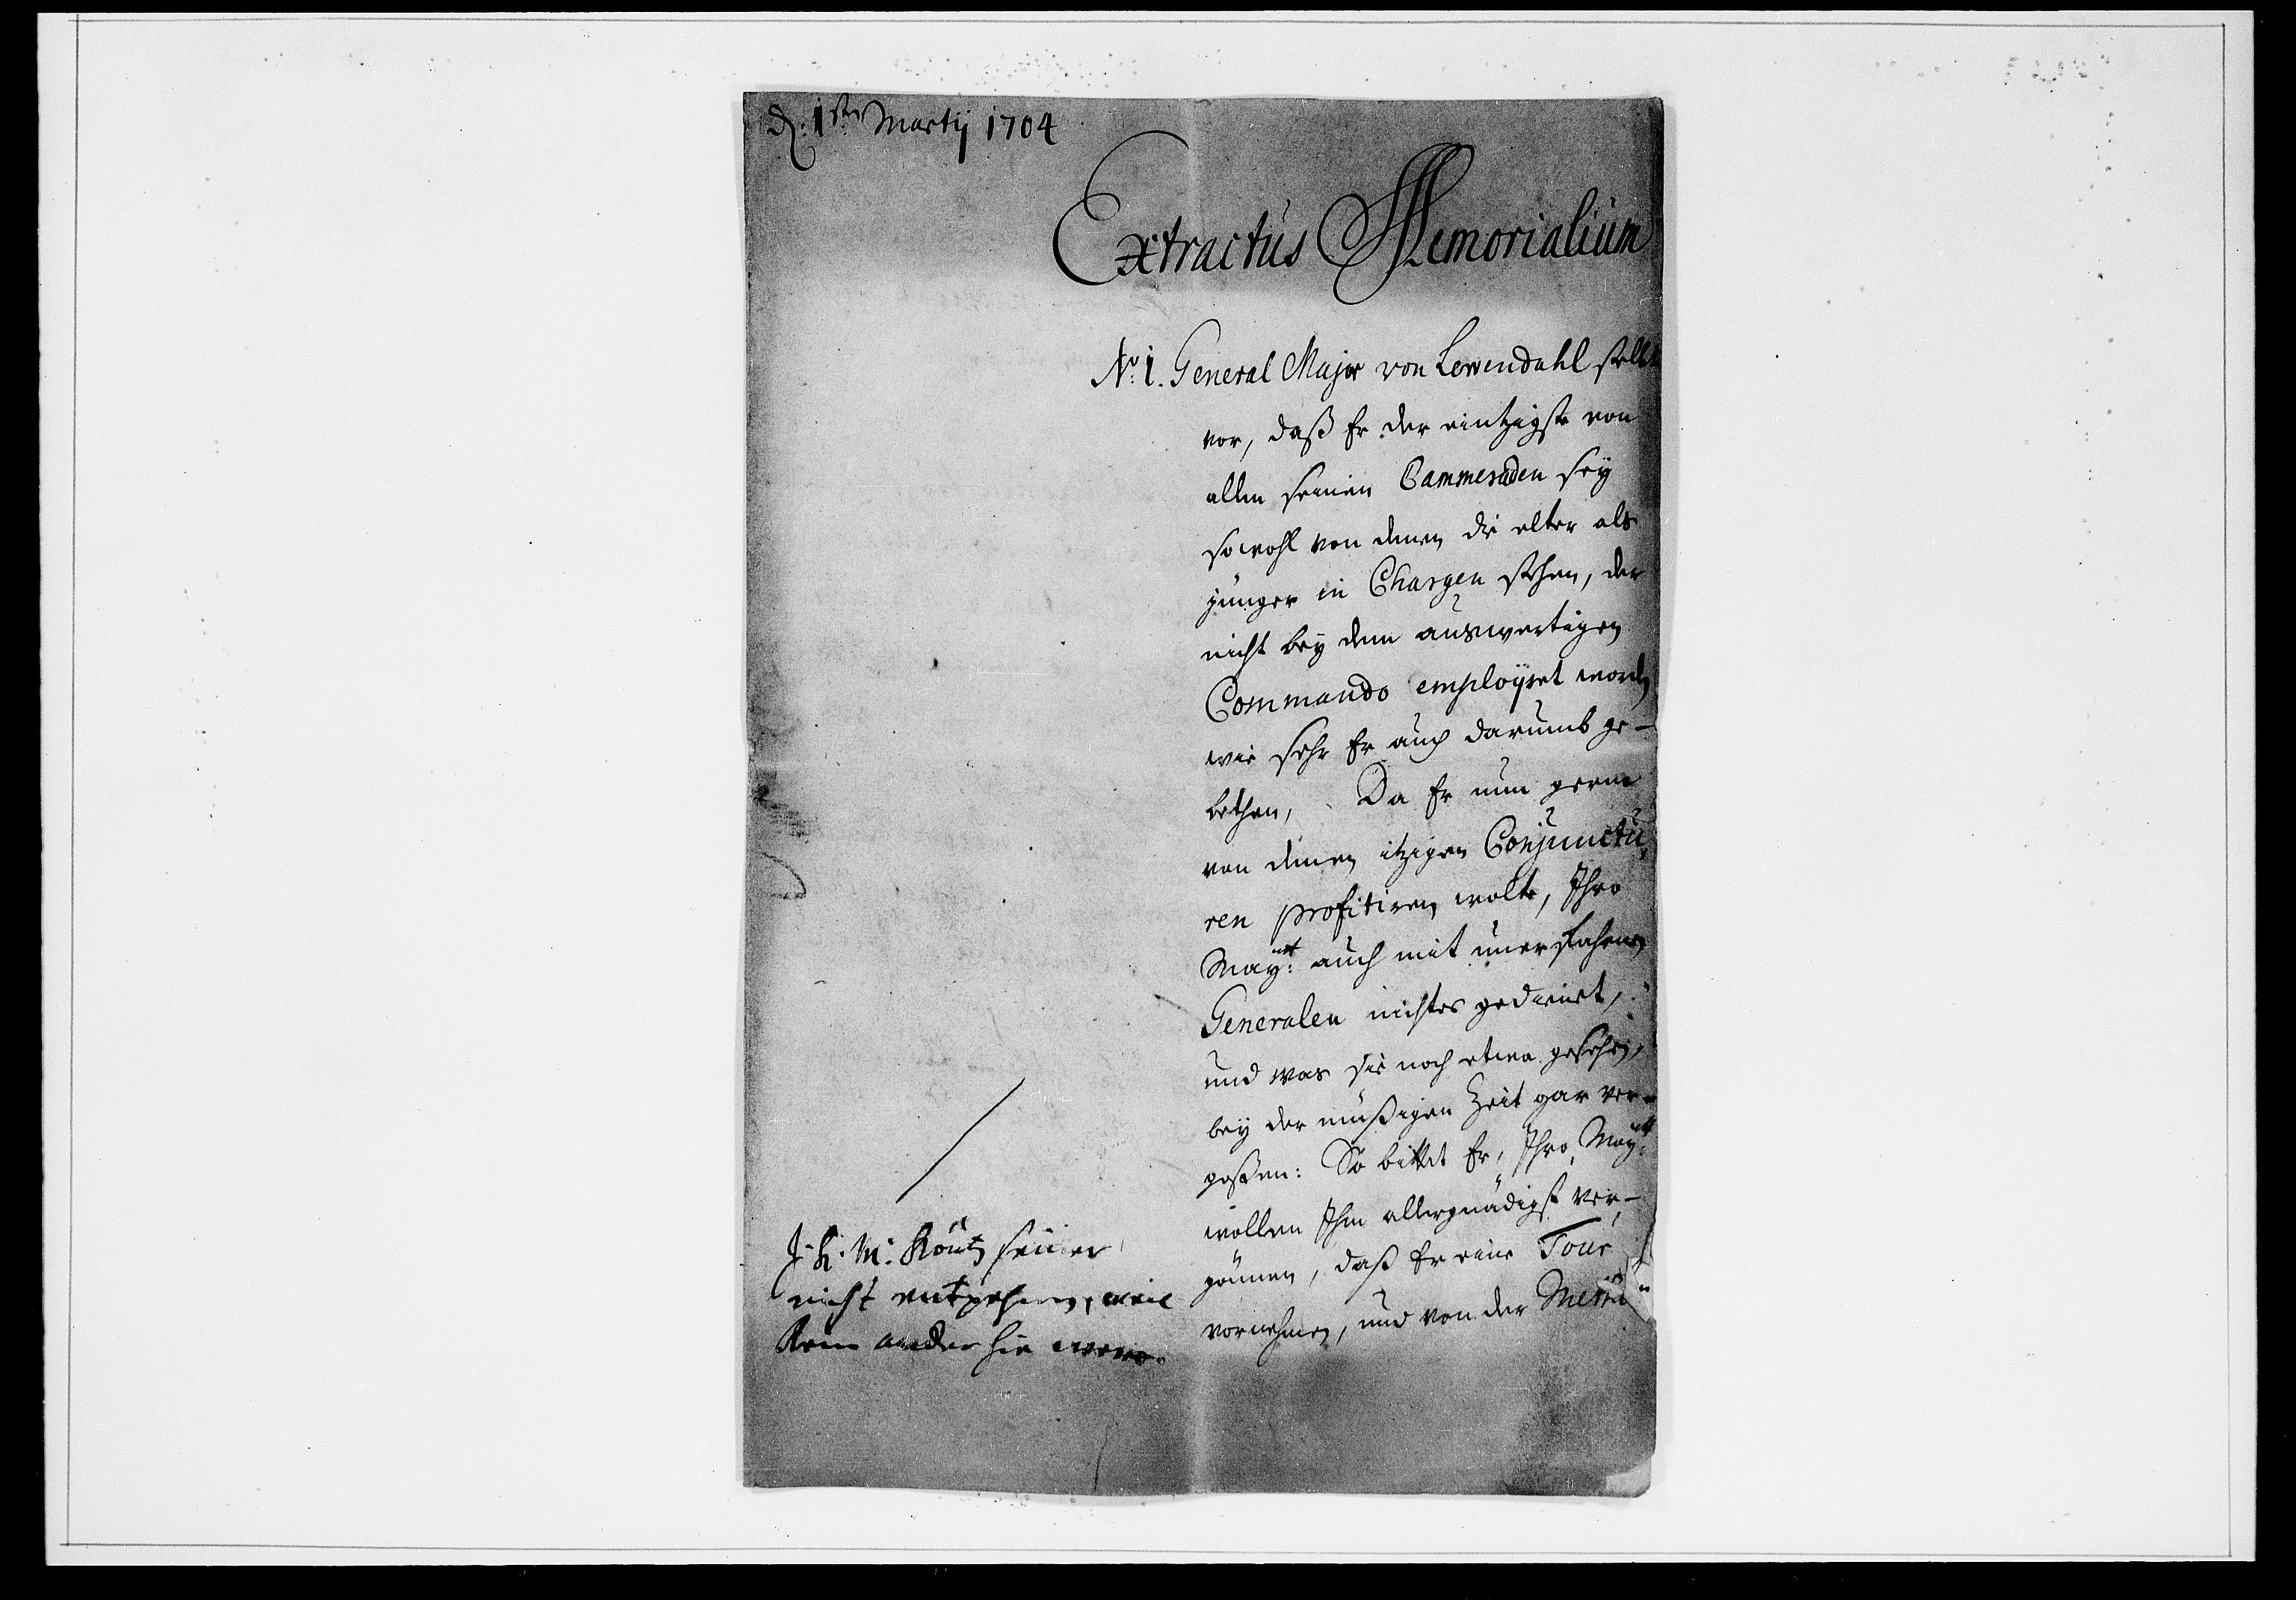 d. 1sten Martij 1704
Extractus Memorialium
No: 1. General Major von Lewendahl stellt
vor, daß Er der eintzigste von
allen seinen Cammeraden sey
sowohl von denen die elter als
jünger in Chargen stehen, der
nicht bey dem auswertigen
Commando employret worden
wie sehr Er auch darumb ge-
bethen, Da Er nun gerne
von denen itzigen Conjunctu,
ren profitiren wolte, Ihro
Maytt: auch mit unerfahrnen
Generalen nichtes gedienet,
und was sie noch etwa gesehen,
bey der müßigen Zeit gar ver-
geßen: So bittet Er, Ihro Maytt:
wollen Ihm allergnädigst ver-
gönnen, daß Er eine Tour
vornehmen, und von der
J. K. M: Könten seiner
nicht entgehren, weil
kein ander hie were.